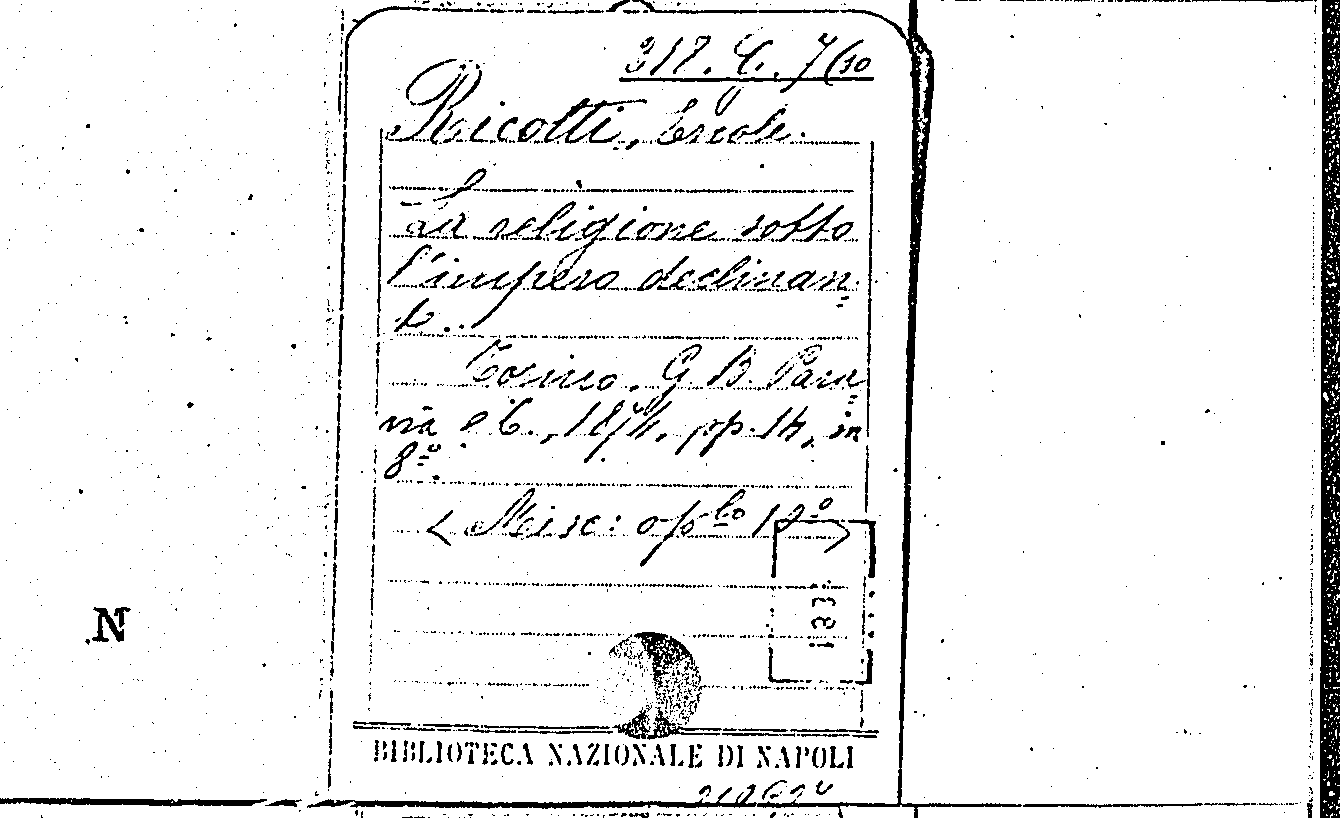 318. G. 7(10
Ricotti, Ercole.
La religione sotto
l'impero declinan=
te..
Torino, G. B. Para=
via e C., 1874, pp. 14, in
8º.
< Misc: opˡᵒ 10º >
1331
N
BIBLIOTECA NAZIONALE DI NAPOLI